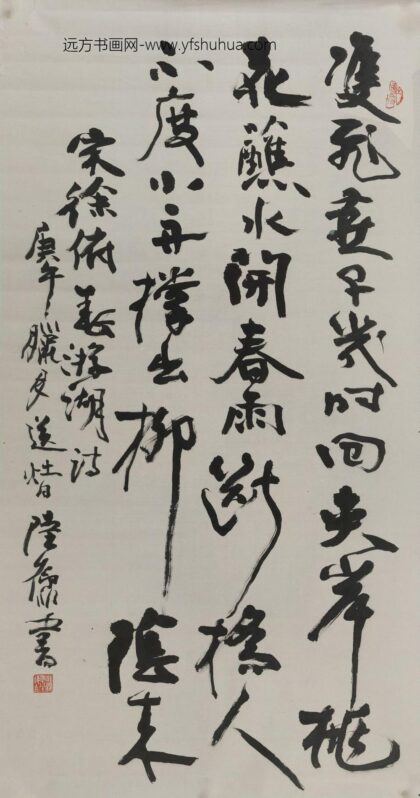 远方书画网-www.yfshuhua.com
雙飛燕子幾时回夹岸桃
花蘸水開春雨斷橋人
不度小舟撑出柳陰来
宋徐俯春游湖诗
庚午臘月送竈陸康書